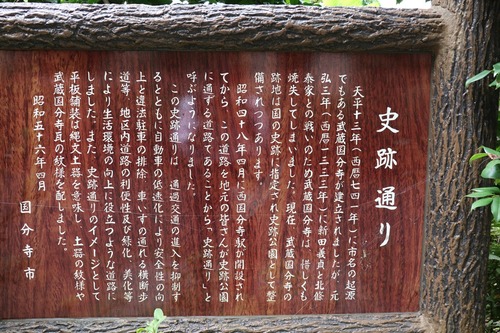 史跡通り
天平十三年（西暦七四一年）に市名の起源
でもある武蔵国分寺が建立されましたが、元
弘三年（西暦一三三三年）に新田義貞と北條
泰家との戦いのため武蔵国分寺は、惜しくも
焼失してしまいました。現在、武蔵国分寺の
跡地は国の史跡に指定され史跡公園として整
備されつつあります。
昭和四十八年四月に西国分寺駅が開設され
てから、この道路を地元の皆さんが史跡公園
に通ずる道路であることから、「史跡通り」と
呼ぶようになりました。
この史跡通りは、通過交通の進入を抑制す
るとともに自動車の低速化により安全性の向
上と違法駐車の排除、車いすの通れる横断歩
道等、地区内道路の利便性及び緑化、美化等
により生活環境の向上に役立つような道路に
しました。また、史跡通りのイメージとして
平板舗装は縄文土器を意味し、土器の紋様や
武蔵国分寺瓦の紋様を配しました。
昭和五十六年四月
国分寺市